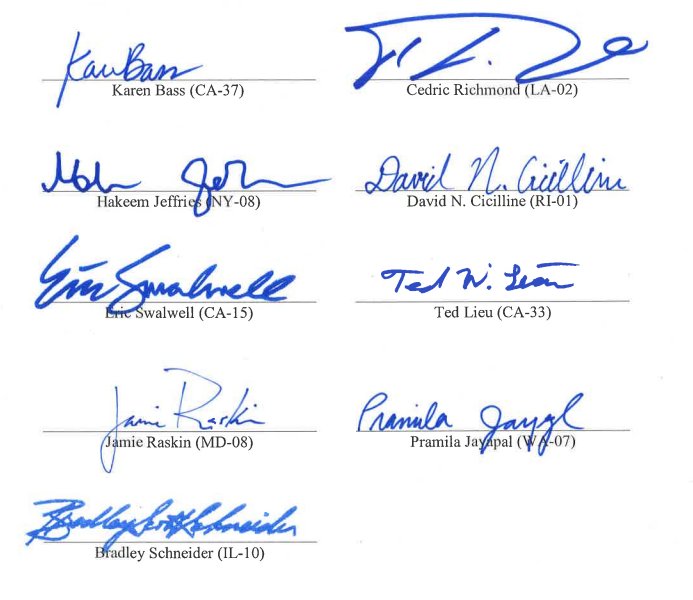 Karen Bass
Karen Bass (CA-37)
Cedric Richmond (LA-02)
Hakeem Jeffries (NY-08)
David N. Cicilline
David N. Cicilline (RI-01)
Eric Swalwell
Eric Swalwell (CA-15)
Ted W. Lieu
Ted Lieu (CA-33)
Jamie Raskin
Jamie Raskin (MD-08)
Pramila Jayapal
Pramila Jayapal (WA-07)
Bradley Scott Schneider
Bradley Schneider (IL-10)